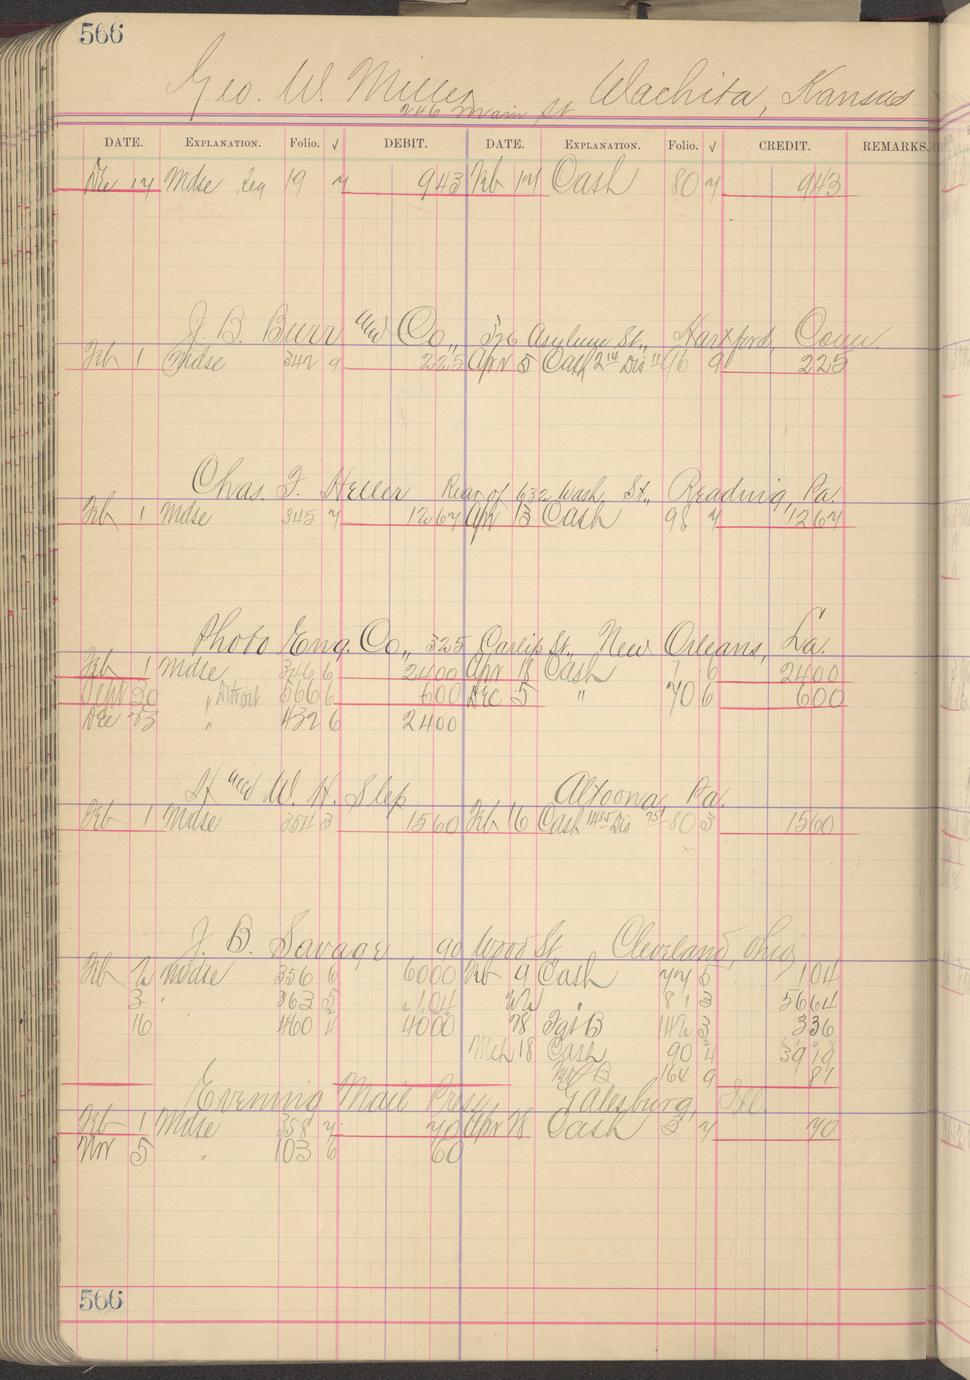 566
Geo. W. Miller Wachita, Kansas
246 Main St
DATE. EXPLANATION. Folio. √ DEBIT. DATE. EXPLANATION. Folio. √ CREDIT. REMARKS.
Dec 17 Mdse 19 7 943 Feb 17 Cash 80 7 943
J. B. Burr and Co., 336 Asylum St., Hartford, Conn.
Feb 1 Mdse 342 9 225 Apr 5 Cash Dis 96 9 225
Chas. F. Heller Rear of 632 Wash. St., Reading, Pa.
Feb 1 Mdse 345 7 1267 Apr 13 Cash 98 7 1267
Photo Eng. Co., 325 St., New Orleans, La.
Feb 1 Mdse 346 6 2400 Apr 18 Cash 1 6 2400
Sept 20 " Detroit 566 6 600 Dec 5 " 70 6 600
Dec 23 " 432 6 2400
H and W. H. Slep Altoona, Pa.
Feb 1 Mdse 354 3 1560 Feb 16 Cash Dis 80 3 1560
J. B. Savage 90 Wood St., Cleveland, Ohio
Feb 2 Mdse 356 6 6000 Feb 9 Cash 77 5 104
3 " 363 5 104 22 " 81 3 5664
16 460 4 4000 28 Fgt B 142 3 336
Mch 18 Cash 90 4 3919
B 164 9 81
Evening Mail Press Galesburg, Ill.
Feb 1 Mdse 358 7 70 Apr 28 Cash 3 7 70
Nov 5 " 103 6 60
566